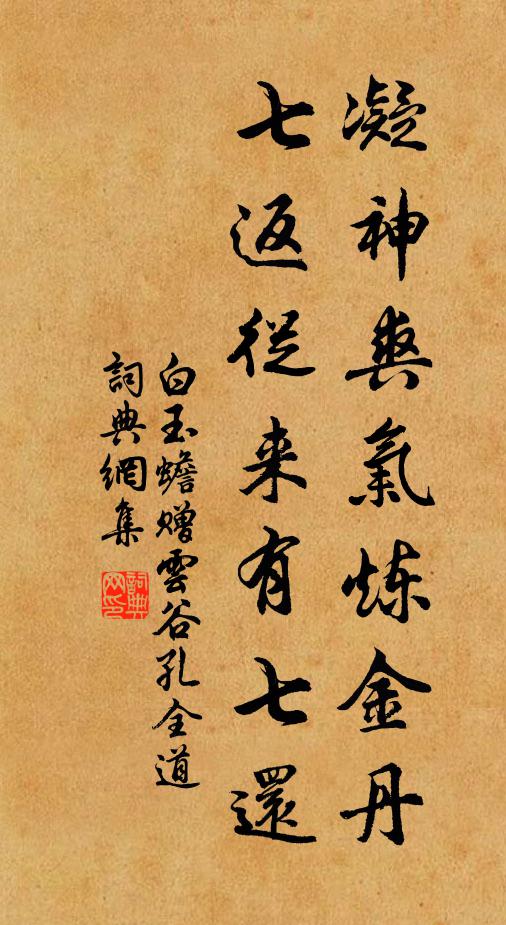 凝神爽氣炼金丹
七返從来有七還
白玉蟾赠雲谷孔全道
詞典網集
詞典网印